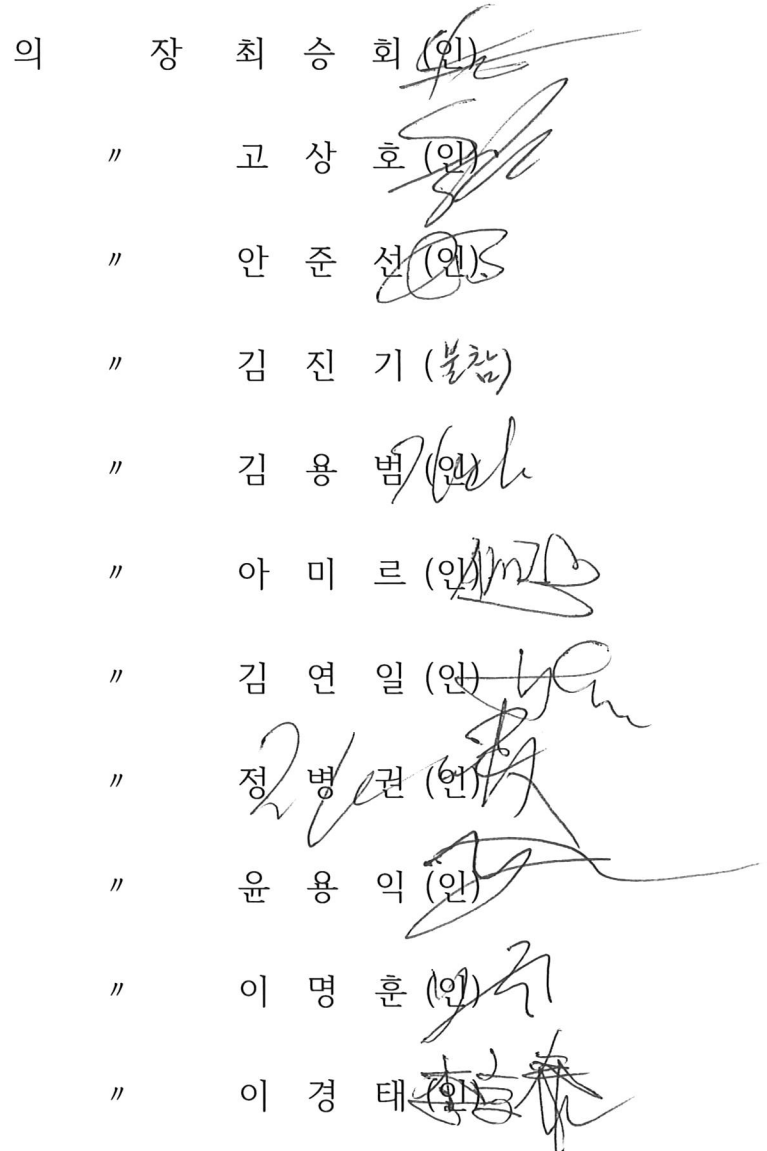 의 장 최 승 회 (인)
〃 고 상 호 (인)
〃 안 준 선 (인)
〃 김 진 기 (불참)
〃 김 용 범 (인)
〃 아 미 르 (인)
〃 김 연 일 (인)
〃 정 병 권 (인)
〃 윤 용 익 (인)
〃 이 명 훈 (인)
〃 이 경 태 (인)